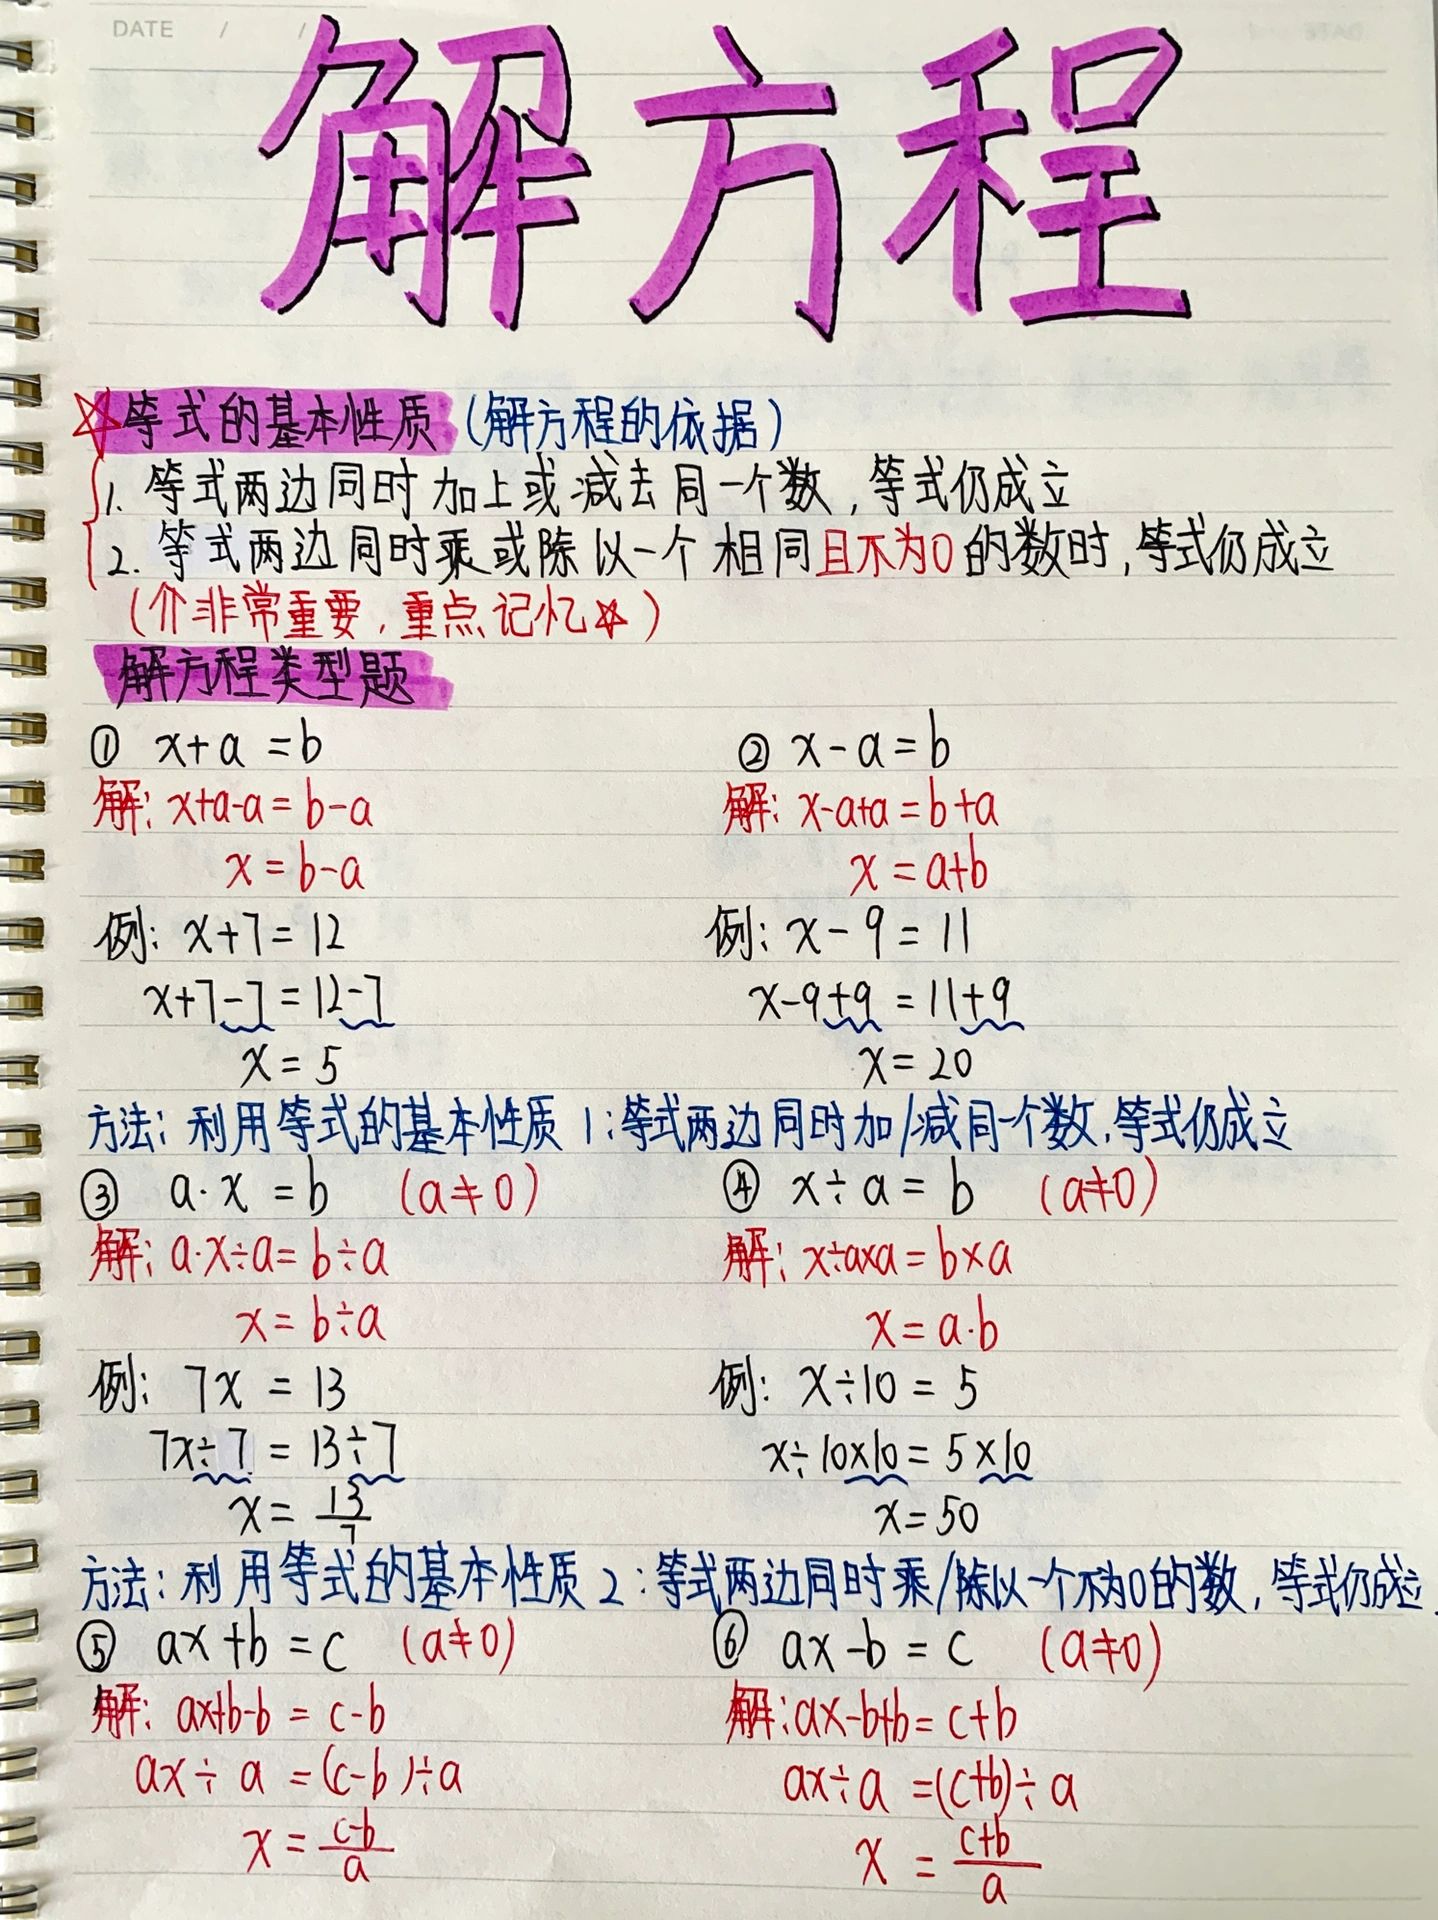 DATE / /
解方程
☆等式的基本性质(解方程的依据)
1. 等式两边同时加上或减去同一个数,等式仍成立
2. 等式两边同时乘或除以一个相同且不为0的数时,等式仍成立
(个非常重要,重点记忆☆)
解方程类型题
① x+a=b
② x-a=b
解: x+a-a=b-a
解: x-a+a=b+a
x=b-a
x=a+b
例: x+7=12
例: x-9=11
x+7-7=12-7
x-9+9=11+9
x=5
x=20
方法: 利用等式的基本性质1:等式两边同时加/减同一个数,等式仍成立
③ a·x=b (a≠0)
④ x÷a=b (a≠0)
解: a·x÷a=b÷a
解: x÷a×a=b×a
x=b÷a
x=a·b
例: 7x=13
例: x÷10=5
7x÷7=13÷7
x÷10×10=5×10
x=13/7
x=50
方法: 利用等式的基本性质2:等式两边同时乘/除以一个不为0的数,等式仍成立.
⑤ ax+b=c (a≠0)
⑥ ax-b=c (a≠0)
解: ax+b-b=c-b
解: ax-b+b=c+b
ax÷a=(c-b)÷a
ax÷a=(c+b)÷a
x=c-b/a
x=c+b/a